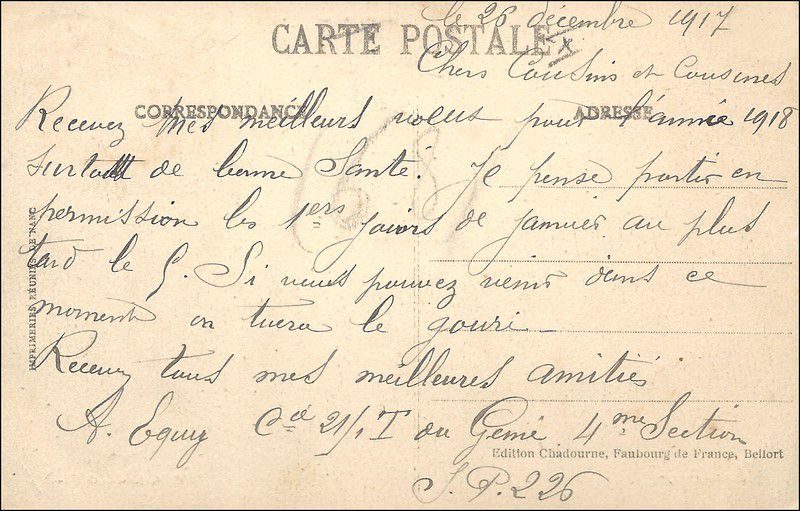 le 26 décembre 1917
CARTE POSTALE
Chers Cousins et Cousines
CORRESPONDANCE
ADRESSE
Recevez mes meilleurs vœux pour l'année 1918
surtout de bonne Santé. Je pense partir en
permission les 1ers jours de janvier au plus
tard le 5. Si vous pouvez venir dans ce
moment on tuera le gouri
Recevez tous mes meilleures amitiés
A. Equy Cie 21/1 T du Génie 4me Section
Edition Chadourne, Faubourg de France, Belfort
S. P. 226
IMPRIMERIES RÉUNIES DE NANCY